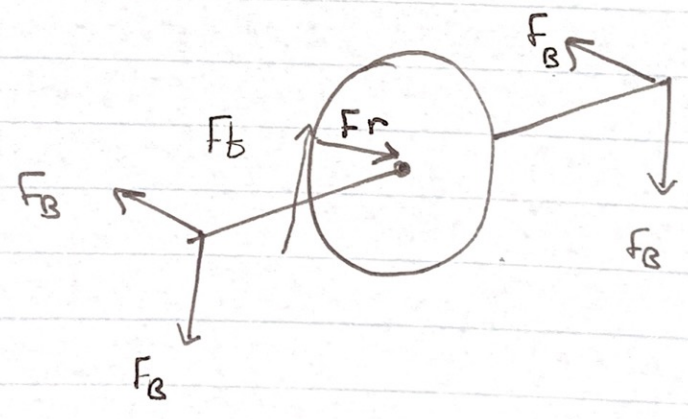 FB
Ft
Fr
FB
FB
FB